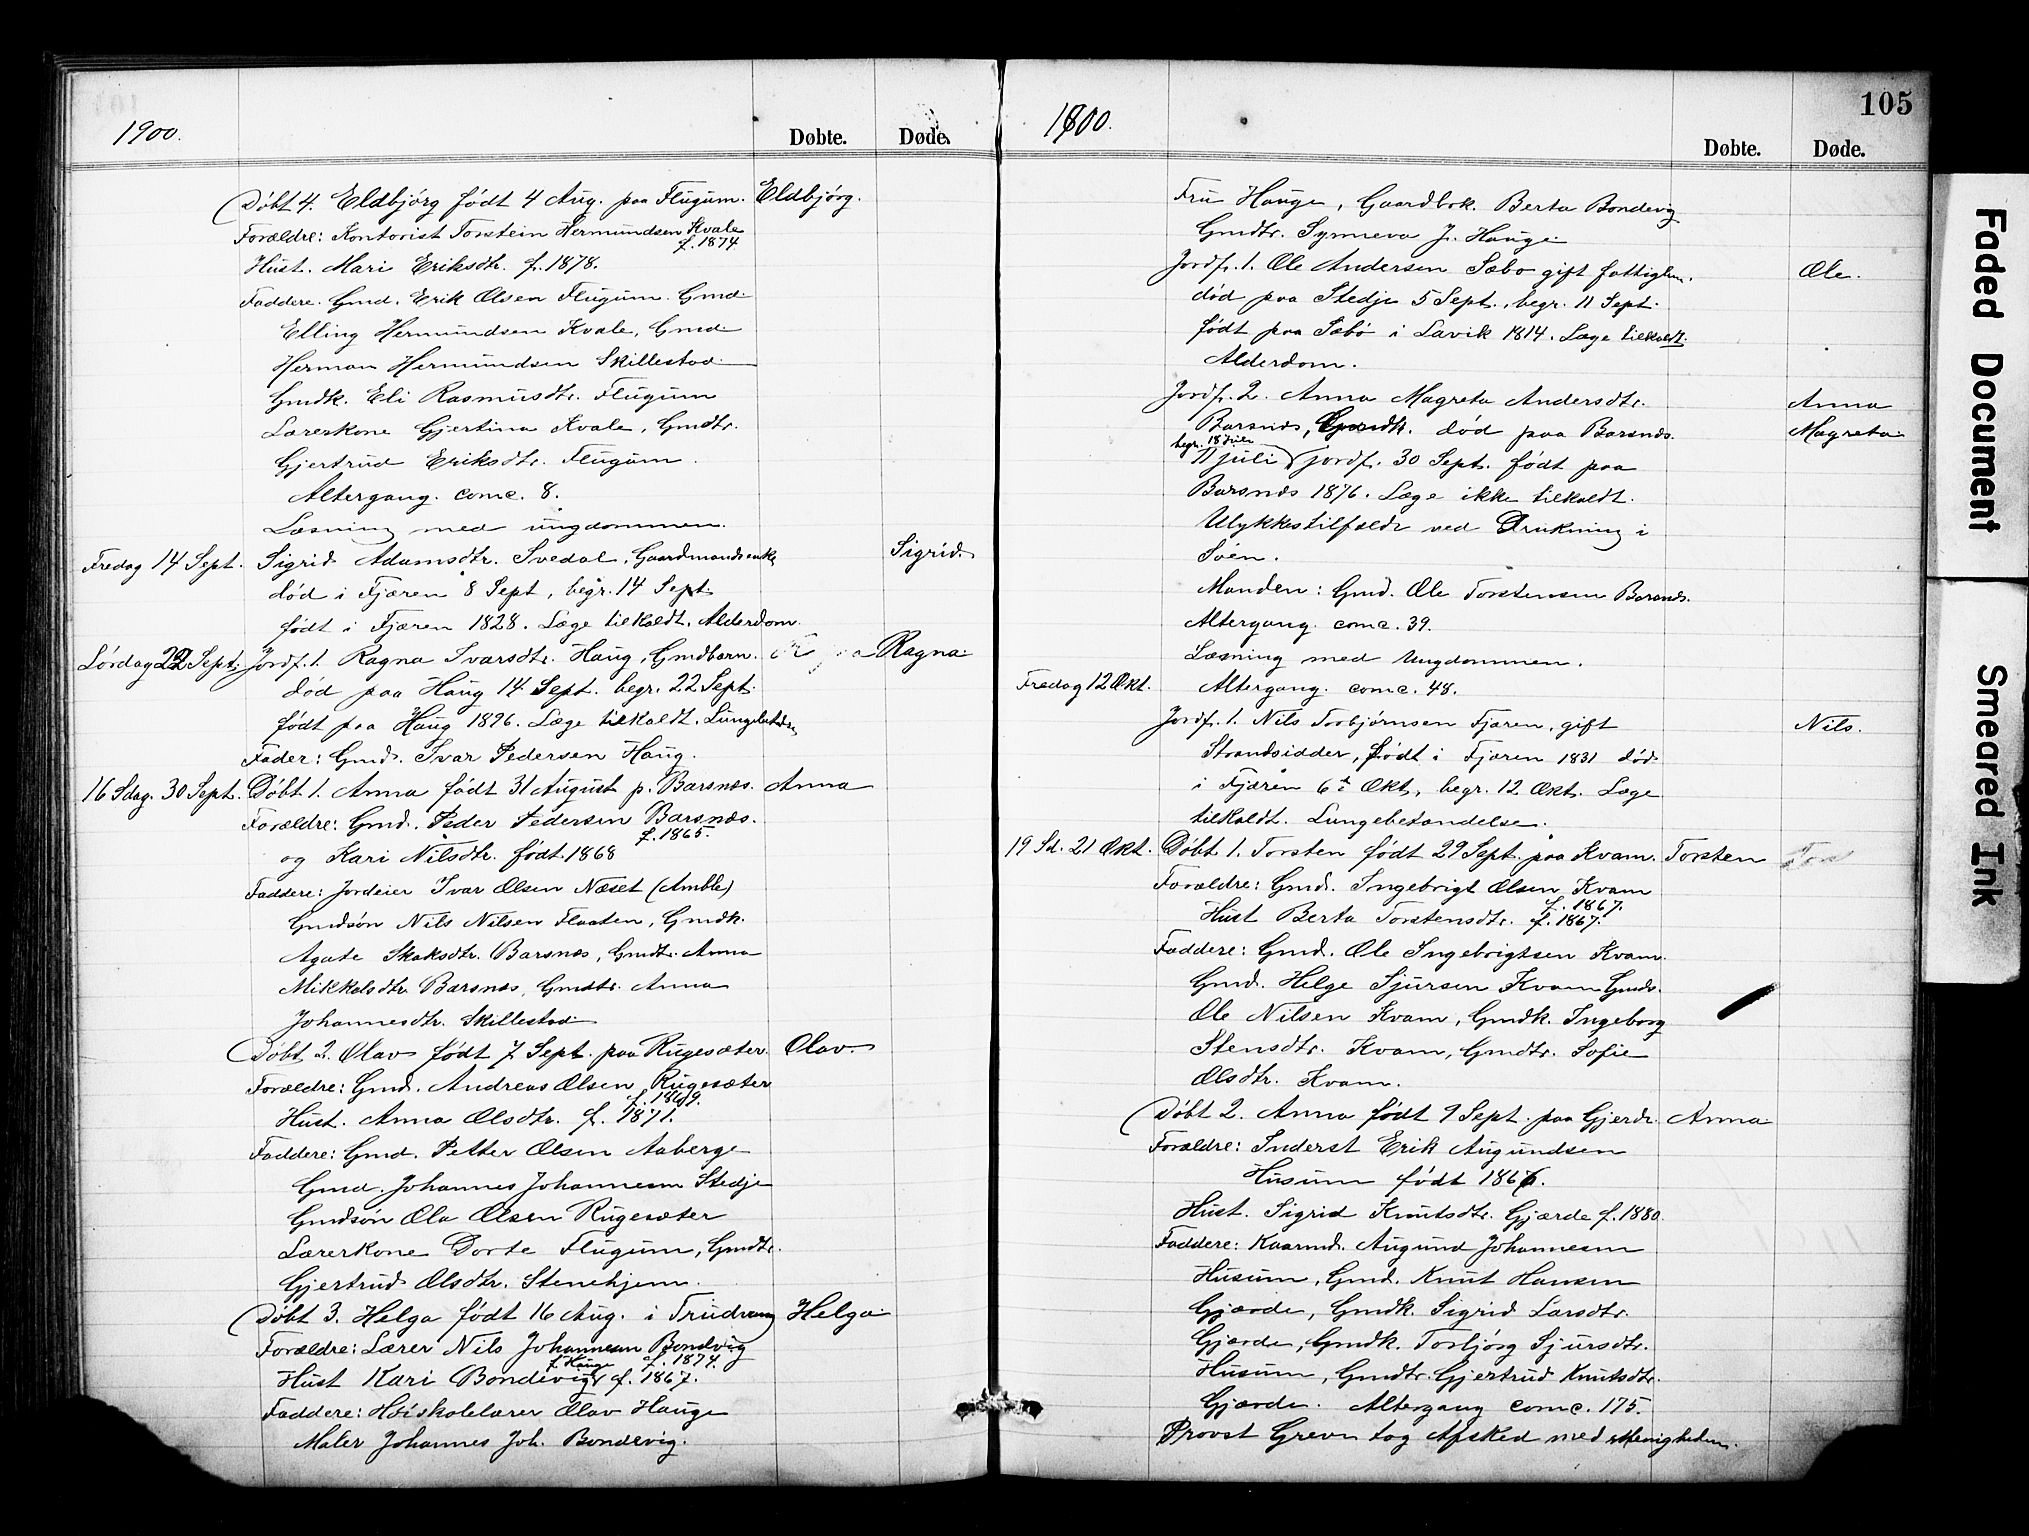 1900.
Døbte.
Døde.
Døbt 4. Eldbjørg født 4 Aug. paa Flugum. Eldbjørg.
Forældre: Kontorist Torstein Hermundsen Kvale
f. 1874
Hust. Mari Eriksdtr. f. 1878.
Faddere. Gmd. Erik Olsen Flugum. Gmd.
Elling Hermundsen Kvale, Gmd.
Herman Hermundsen Skillestad
Gmdk. Eli Rasmusdtr. Flugum
Lærerkone Gjertina Kvale, Gmdtr.
Gjertrud Eriksdtr. Flugum.
Altergang. comc. 8.
Læsning med ungdommen.
Fredag 14 Sept. Sigrid Adamsdtr. Svedal, Gaardmandsenke Sigrid.
død i Fjæren 8 Sept, begr. 14 Sept.
født i Fjæren 1828. Læge tilkaldt. Alderdom.
Lørdag 22 Sept. Jordf. 1. Ragna Ivarsdtr. Haug, Gmdbarn. Ragna.
død paa Haug 14 Sept. begr. 22 Sept.
født paa Haug 1896. Læge tilkaldt.
Fader: Gmd. Ivar Pedersen Haug.
16 Sdag. 30 Sept. Døbt 1. Anna født 31 August p. Barsnes. Anna
Forældre: Gmd. Peder Pedersen Barsnes.
f. 1865.
og Kari Nilsdtr. født 1868
Faddere: Jordeier Ivar Olsen Næset (Amble)
Gmdsøn Nils Nilsen Flaaten, Gmdk.
Agate Skaksdtr. Barsnes, Gmdtr. Anna
Mikkelsdtr. Barsnes, Gmdtr. Anna
Johannesdtr. Skillestad
Døbt 2. Olav født 7 Sept. paa Rugesæter. Olav.
Forældre: Gmd. Andreas Olsen Rugesæter
f. 1869.
Hust. Anna Olsdtr. f. 1871.
Faddere: Gmd. Petter Olsen Aaberge
Gmd. Johannes Johannesen Stedje
Gmdsøn Ola Olsen Rugesæter
Lærerkone Dorte Flugum, Gmdtr.
Gjertrud Olsdtr. Stenehjem.
Døbt 3. Helga født 16 Aug. i Trudvang Helga
Forældre: Lærer Nils Johannesen Bondevig
f. Hauge f. 1874.
Hust Kari Bondevig f. 1867.
Faddere: Høiskolelærer Olav Hauge
Maler Johannes Joh. Bondevig.
1900.
105
Døbte.
Døde.
Fru Hauge, Gaardbrk. Berta Bondevig
Gmdtr. Synneva J. Hauge
Jordf. 1. Ole Andersen Sæbø gift fattiglem. Ole.
død paa Stedje 5 Sept., begr. 11 Sept.
født paa Sæbø i Lavik 1814. Læge tilkaldt.
Alderdom.
Jordf. 2. Anna Magreta Andersdtr. Anna
Barsnes, Gmdk. død paa Barsnes Magreta
begr. 18 Juli
11 juli jordf. 30 Sept. født paa
Barsnes 1876. Læge ikke tilkaldt.
Ulykkestilfælde ved Drukning i
Søen.
Manden: Gmd. Ole Torstensen Barsnes.
Altergang. comc. 39.
Læsning med Ungdommen.
Fredag 12 Okt. Altergang. comc. 48.
Jordf. 1. Nils Torbjørnsen Fjæren, gift Nils.
Strandsidder, født i Fjæren 1831 død
i Fjæren 6te Okt., begr. 12 Okt. Læge
tilkaldt. Lungebetændelse.
19 Sd. 21 Okt. Døbt 1. Torsten født 29 Sept. paa Kvam. Torsten
Forældre: Gmd. Ingebrigt Olsen Kvam
f. 1867.
Hust Berta Torstensdtr. f. 1867.
Faddere: Gmd. Ole Ingebrigtsen Kvam.
Gmd. Helge Sjursen Kvam Gmds.
Ole Nilsen Kvam, Gmdk. Ingeborg
Stensdtr. Kvam, Gmdtr. Sofie
Olsdtr. Kvam.
Døbt 2. Anna født 9 Sept. paa Gjerde. Anna
Forældre: Inderst Erik Augundsen
Husum født 1866.
Hust. Sigrid Knutsdtr. Gjærde f. 1880.
Faddere: Kaarmd. Augund Johannesen
Husum, Gmd. Knut Hansen
Gjærde, Gmdk. Sigrid Larsdtr.
Gjærde, Gmdk. Torbjørg Sjursdtr.
Husum, Gmdtr. Gjertrud Knutsdtr.
Gjærde. Altergang comc. 175.
Provst Greve tog Afsked med Menigheden.
Faded Document
Smeared Ink